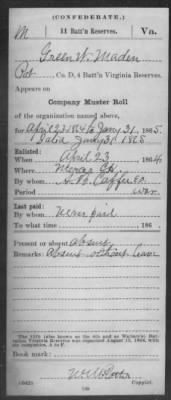 (CONFEDERATE.)
M 11 Batt'n Reserves. Va.
Green W. Maden
Pvt, Co. D, 4 Batt'n Virginia Reserves.
Appears on
Company Muster Roll
of the organization named above,
for April 23 1864 to Jany 31, 1865.
Dated Jany 31 1865
Enlisted:
When April 23, 1864
Where Mercer Co.
By whom
Period War.
Last paid:
By whom Never paid
To what time 186
Present or absent Absent
Remarks: Absent without leave
The 11th (also known as the 4th and as Wallace's) Battalion Virginia Reserves was organized August 13, 1864, with six companies, A to F.
Book mark:
Copyist.